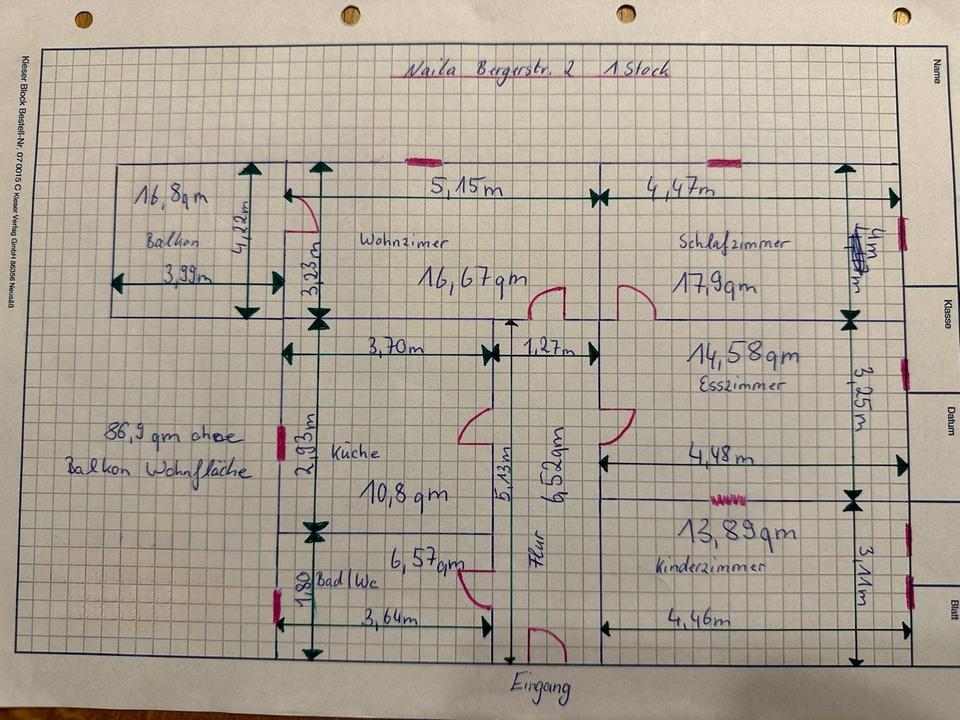 Naila Bergerstr. 2 1 Stock
Name
Klasse
Datum
Blatt
Kieser Block Bestell-Nr. 07 0015 C Kieser Verlag GmbH 86356 Neusäß
16,8qm
Balkon
3,99m
4,22m
5,15m
3,23m
Wohnzimer
16,67qm
4,47m
Schlafzimmer
17,9qm
4m
3,70m
1,27m
14,58qm
Esszimmer
3,25m
4,48m
86,9 qm ohne
Balkon Wohnfläche
2,93m
Küche
10,8qm
5,13m
6,52qm
Flur
6,57qm
Bad/Wc
1,80
3,64m
13,89qm
Kinderzimmer
3,11m
4,46m
Eingang